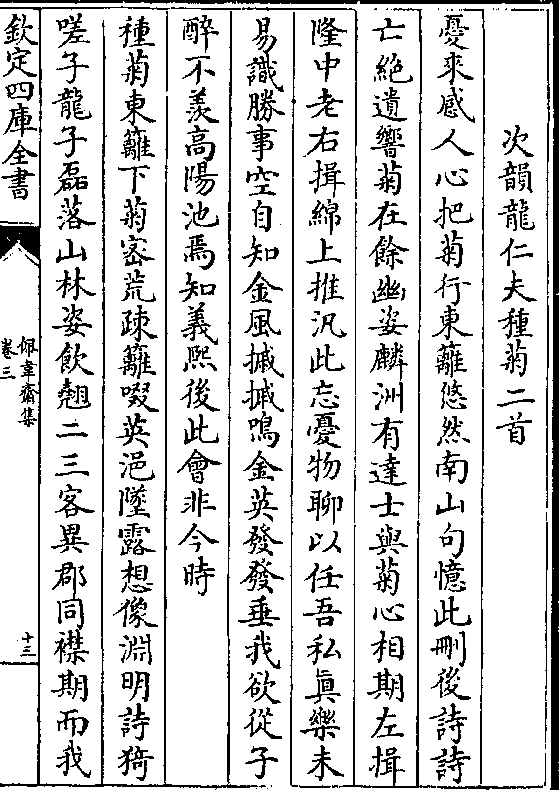 次韻龍仁夫種菊二首
憂來感人心把菊行東籬悠然南山句憶此刪後詩詩
亡絶遺響菊在餘幽姿麟洲有達士與菊心相期左揖
隆中老右揖綿上推汎此忘憂物聊以任吾私真樂未
易識勝事空自知金風摵摵鳴金英發發垂我欲從子
醉不羨高陽池焉知義熙後此會非今時
種菊東籬下菊宻荒疎籬啜英浥墜露想像淵明詩猗
嗟子龍子磊落山林姿飲翹二三客異郡同襟期而我
欽定四庫全書
佩韋齋集
卷三
十三